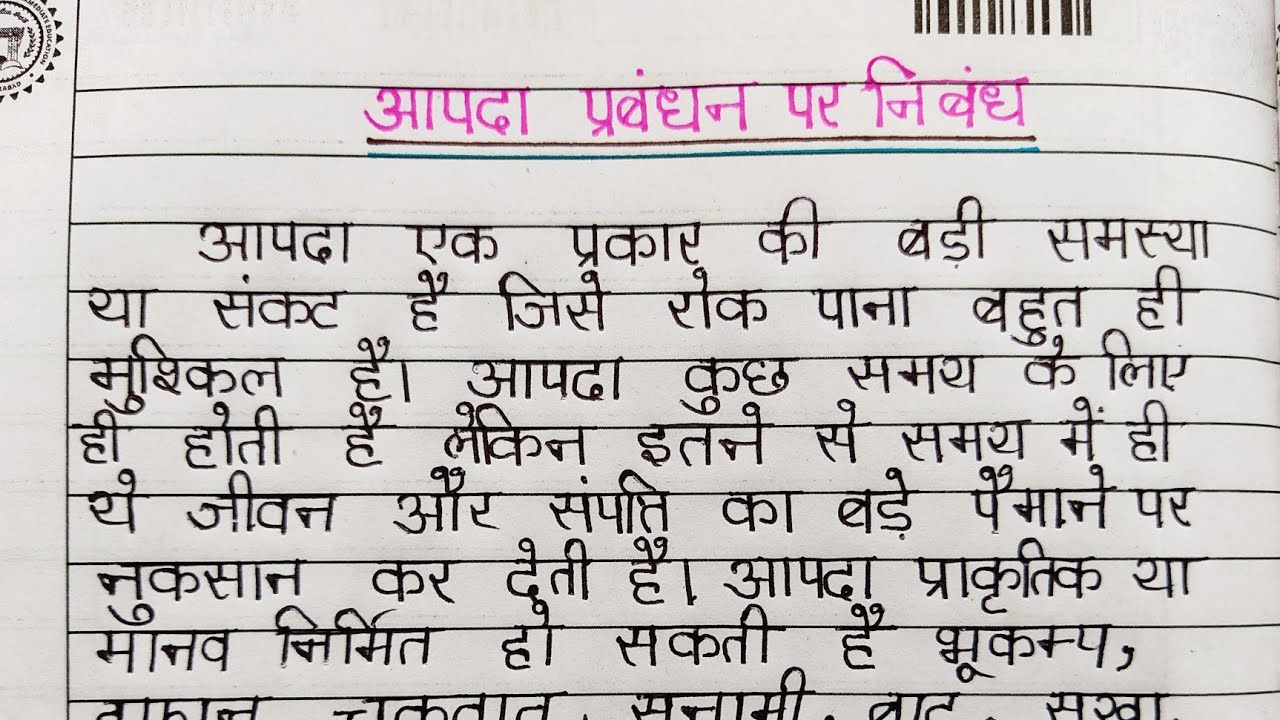 आपदा प्रबंधन पर निबंध
आपदा एक प्रकार की बड़ी समस्या
या संकट है जिसे रोक पाना बहुत ही
मुश्किल है। आपदा कुछ समय के लिए
ही होती है लेकिन इतने से समय में ही
ये जीवन और संपत्ति का बड़े पैमाने पर
नुकसान कर देती है। आपदा प्राकृतिक या
मानव निर्मित हो सकती है भूकम्प,